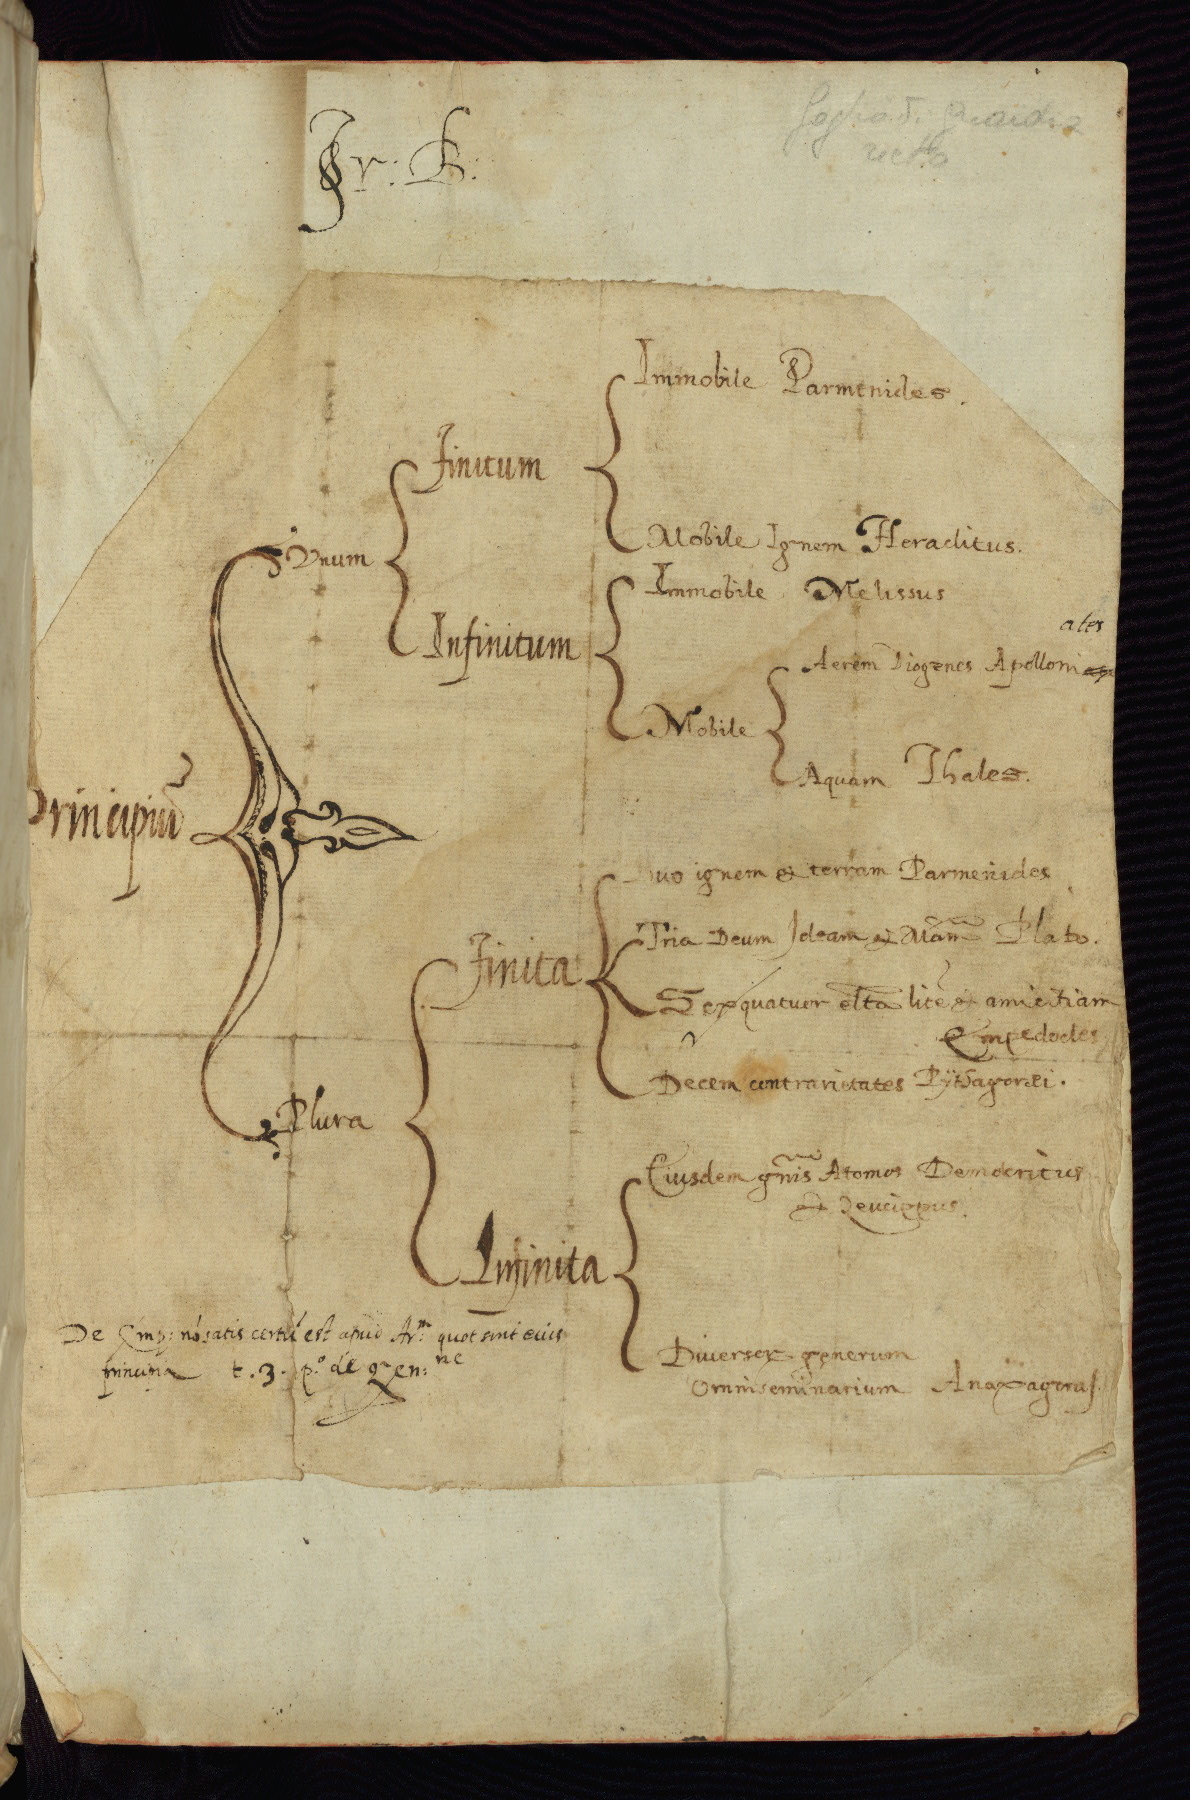 Fr: B:
Foglio di guardia
recto
Principiũ
Vnum
Finitum
Immobile Parmenides.
Mobile Ignem Heraclitus.
Infinitum
Immobile Melissus
Mobile
ates
Aerem Diogenes Apolloni
Aquam Thales.
Plura
Finita
Duo ignem & terram Parmenides
Tria Deum Ideam & Mam̃ Plato.
Sex quatuor elta litẽ & amicitiam
Empedocles
Decem contrarietates Pythagoræi.
Infinita
Eiusdem gñis Atomos Democritus
& Leucippus.
Diversor generum
Omniseminarium Anaxagoras.
De Emp: nõ satis certũ est apud Arm quot sint eius
principia t. 3. po de gen: ne